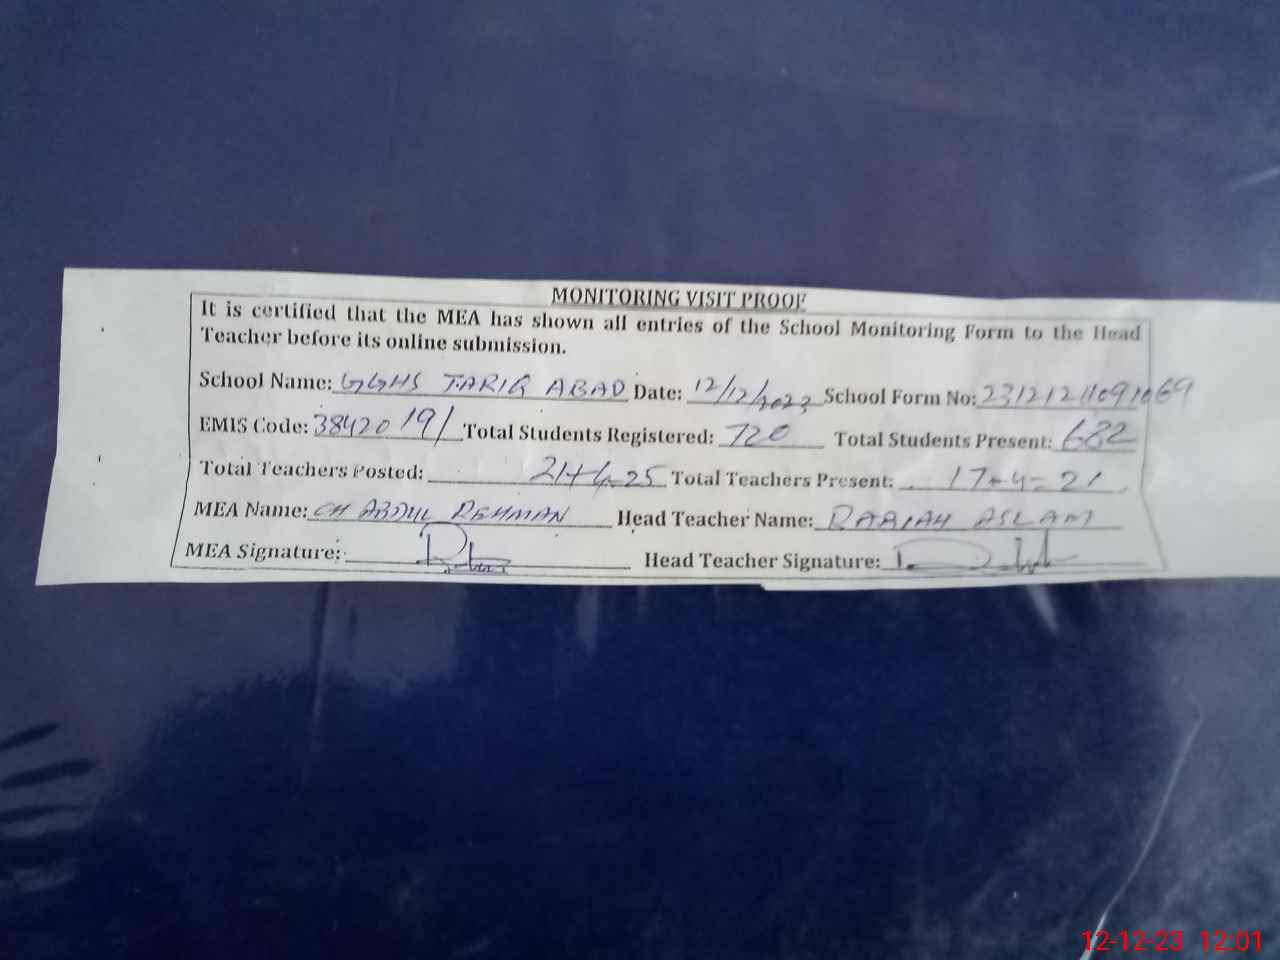 MONITORING VISIT PROOF
It is certified that the MEA has shown all entries of the School Monitoring Form to the Head
Teacher before its online submission.
School Name: GGHS TARIQ ABAD Date: 12/12/2023 School Form No: 23121211091069
EMIS Code: 38420191 Total Students Registered: 720 Total Students Present: 682
Total Teachers Posted: 21+4=25 Total Teachers Present: 17+4=21
MEA Name: CH ABDUL REHMAN Head Teacher Name: RABIAH ASLAM
MEA Signature: Head Teacher Signature:
12-12-23 12:01